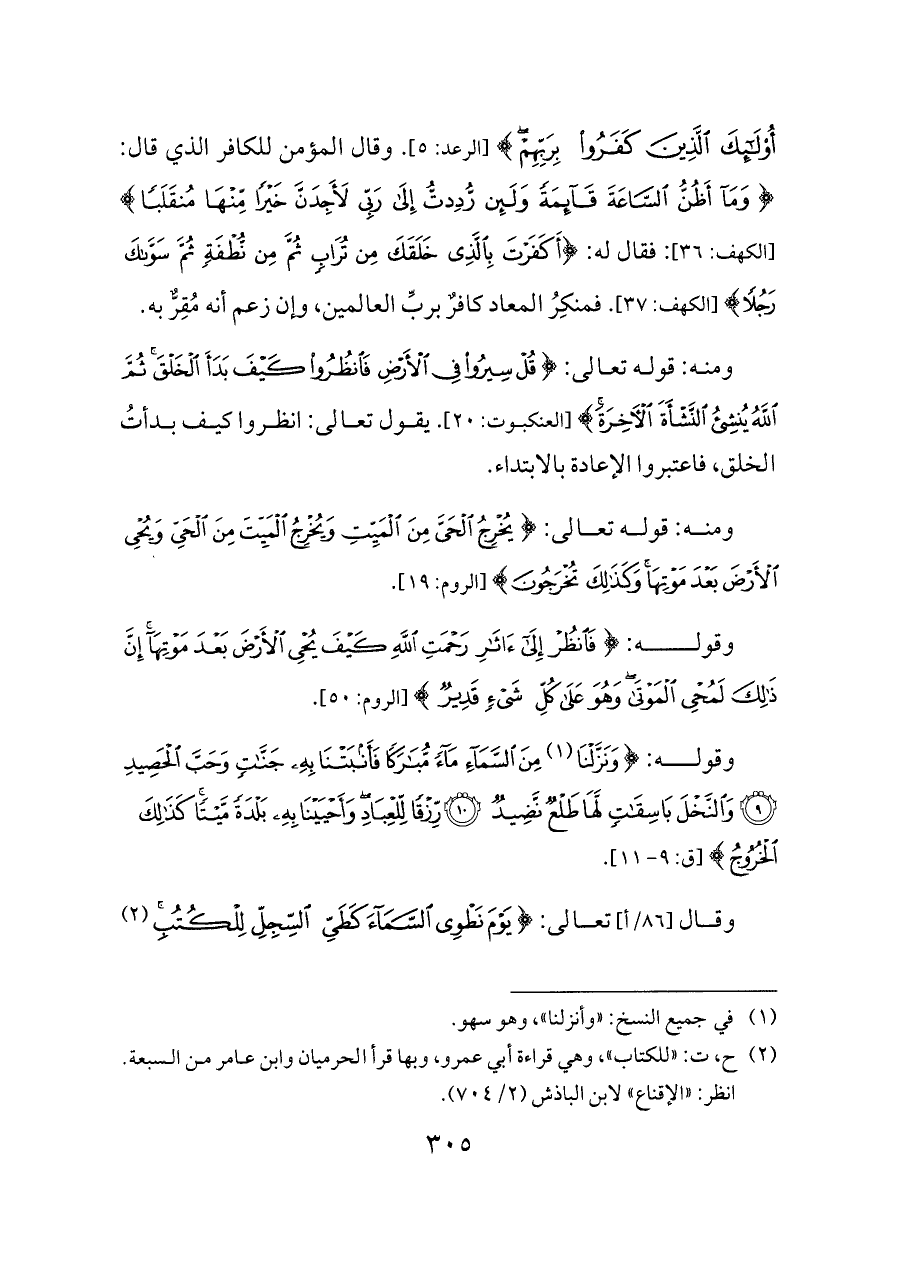 أُوْلَٰٓئِكَ ٱلَّذِينَ كَفَرُوا۟ بِرَبِّهِمْۖ ﴾ [الرعد: ٥]. وقال المؤمن للكافر الذي قال:
﴿ وَمَآ أَظُنُّ ٱلسَّاعَةَ قَآئِمَةً وَلَئِن رُّدِدتُّ إِلَىٰ رَبِّي لَأَجِدَنَّ خَيْرًا مِّنْهَا مُنقَلَبًا ﴾
[الكهف: ٣٦]: فقال له: ﴿أَكَفَرْتَ بِٱلَّذِي خَلَقَكَ مِن تُرَابٍ ثُمَّ مِن نُّطْفَةٍ ثُمَّ سَوَّىٰكَ
رَجُلًا﴾ [الكهف: ٣٧]. فمنكِرُ المعاد كافرٌ بربِّ العالمين، وإن زعم أنه مُقِرٌّ به.
ومنه: قوله تعالى: ﴿ قُلْ سِيرُوا۟ فِي ٱلْأَرْضِ فَٱنظُرُوا۟ كَيْفَ بَدَأَ ٱلْخَلْقَۚ ثُمَّ
ٱللَّهُ يُنشِئُ ٱلنَّشْأَةَ ٱلْآخِرَةَۚ﴾ [العنكبوت: ٢٠]. يقول تعالى: انظروا كيف بدأتُ
الخلق، فاعتبروا الإعادة بالابتداء.
ومنه: قوله تعالى: ﴿ يُخْرِجُ ٱلْحَيَّ مِنَ ٱلْمَيِّتِ وَيُخْرِجُ ٱلْمَيِّتَ مِنَ ٱلْحَيِّ وَيُحْيِ
ٱلْأَرْضَ بَعْدَ مَوْتِهَاۚ وَكَذَٰلِكَ تُخْرَجُونَ ﴾ [الروم: ١٩].
وقولـــــه: ﴿ فَٱنظُرْ إِلَىٰٓ ءَاثَٰرِ رَحْمَتِ ٱللَّهِ كَيْفَ يُحْيِ ٱلْأَرْضَ بَعْدَ مَوْتِهَآۚ إِنَّ
ذَٰلِكَ لَمُحْيِ ٱلْمَوْتَىٰۖ وَهُوَ عَلَىٰ كُلِّ شَيْءٍ قَدِيرٌ ﴾ [الروم: ٥٠].
وقولـــه: ﴿ وَنَزَّلْنَا (١) مِنَ ٱلسَّمَآءِ مَآءً مُّبَٰرَكًا فَأَنۢبَتْنَا بِهِۦ جَنَّٰتٍ وَحَبَّ ٱلْحَصِيدِ
٩ وَٱلنَّخْلَ بَاسِقَٰتٍ لَّهَا طَلْعٌ نَّضِيدٌ ١٠ رِّزْقًا لِّلْعِبَادِۖ وَأَحْيَيْنَا بِهِۦ بَلْدَةً مَّيْتًاۚ كَذَٰلِكَ
ٱلْخُرُوجُ ﴾ [ق: ٩-١١].
وقال [٨٦/ أ] تعالى: ﴿ يَوْمَ نَطْوِي ٱلسَّمَآءَ كَطَيِّ ٱلسِّجِلِّ لِلْكُتُبِۚ (٢)
(١) في جميع النسخ: «وأنزلنا»، وهو سهو.
(٢) ح، ت: «للكتاب»، وهي قراءة أبي عمرو، وبها قرأ الحرميان وابن عامر من السبعة.
انظر: «الإقناع» لابن الباذش (٢/ ٧٠٤).
٣٠٥